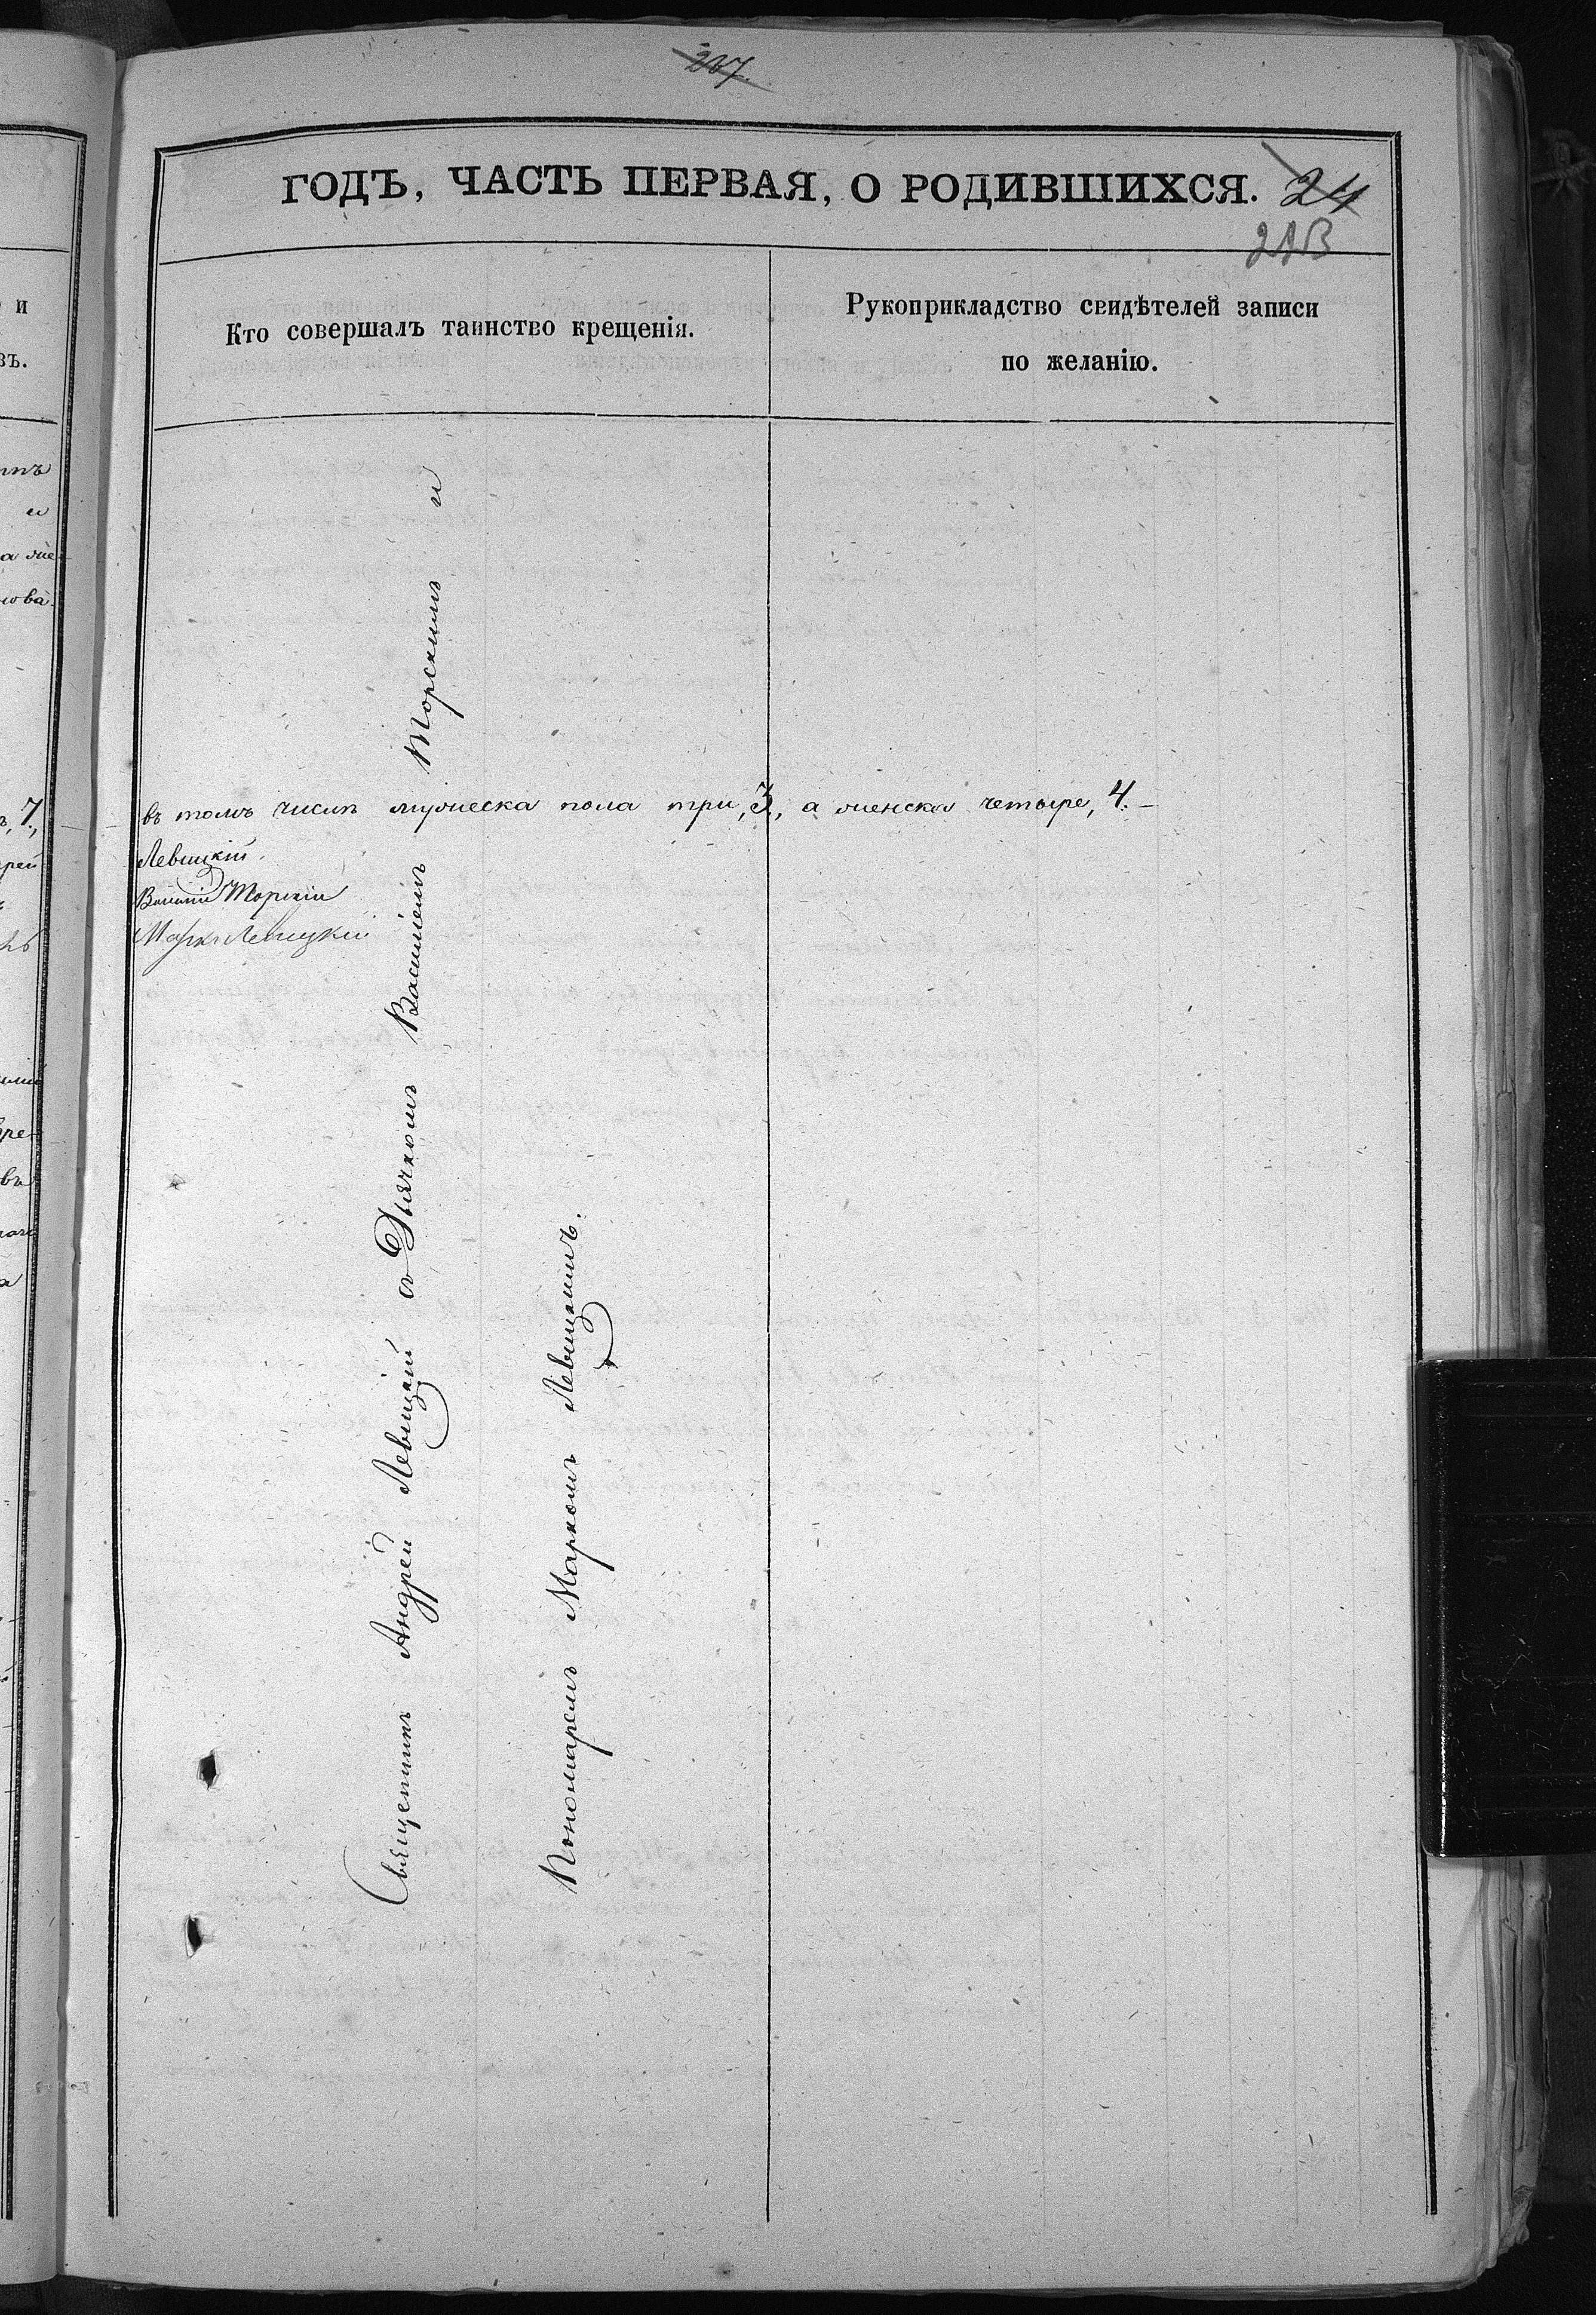 ГОДЪ, ЧАСТЬ ПЕРВАЯ, О РОДИВШИХСЯ. 24
Кто совершалъ таинство крещенія.
Рукоприкладство свидѣтелей записи
по желанію.
въ томъ числѣ мужеска пола три, 3, а женска четыре, 4. –
Левицкій
Василій Торскій
Маркъ Левицкій
Священникъ Андрей Левицкій съ Дьячкомъ Василіемъ Торскимъ и
Пономаремъ Маркомъ Левицкимъ.